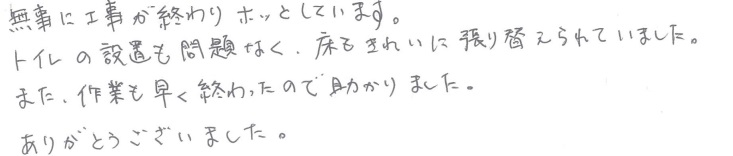 無事に工事が終わりホッとしています。
トイレの設置も問題なく、床もきれいに張り替えられていました。
また、作業も早く終わったので助かりました。
ありがとうございました。